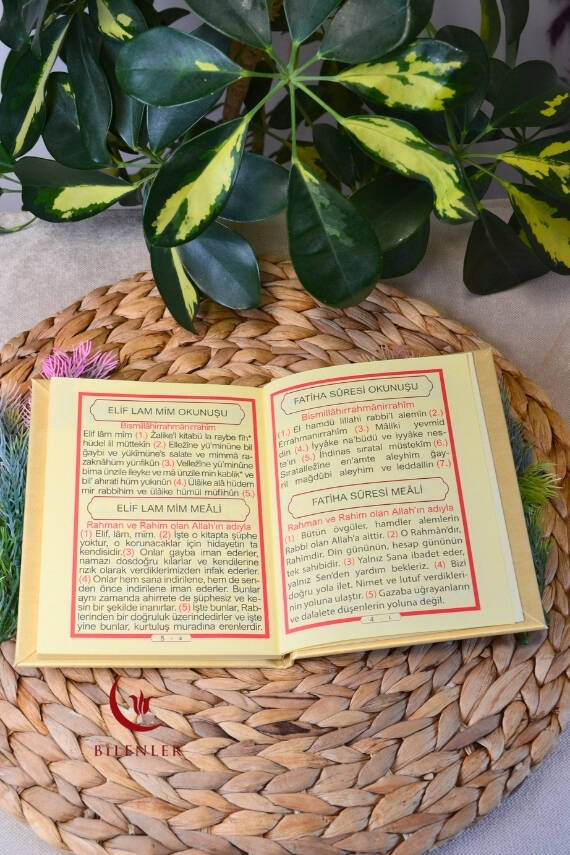 ELİF LAM MİM OKUNUŞU
Bismillâhirrahmânirrahîm
Elif lâm mîm (1.) Zâlike'l kitâbü la raybe fîh*
hüdel lil müttekin (2.) Ellezîne yü'minûne bil
ğaybi ve yükîmûne's salate ve mimmâ ra-
zaknâhüm yünfikûn (3.) Vellezîne yü'minûne
bima ünzile ileyke ve mâ ünzile min kablik* ve
bil' ahirati hüm yukinûn (4.) Ülâike alâ hüdem
mir rabbihim ve ülâike hümül müflihûn (5.)
ELİF LAM MİM MEÂLİ
Rahman ve Rahim olan Allah'ın adıyla
(1) Elif, lâm, mim. (2) İşte o kitapta şüphe
yoktur, o korunacaklar için hidayetin ta
kendisidir.(3) Onlar gayba iman ederler,
namazı dosdoğru kılarlar ve kendilerine
rızık olarak verdiklerimizden infak ederler.
(4) Onlar hem sana indirilene, hem de sen-
den önce indirilene iman ederler. Bunlar
aynı zamanda ahirete de şüphesiz ve ke-
sin bir şekilde inanırlar. (5) İşte bunlar, Rab-
lerinden bir doğruluk üzerindedirler ve işte
yine bunlar, kurtuluş muradına erenlerdir.
5 - 4
FATİHA SÛRESİ OKUNUŞU
Bismillâhirrahmânirrahîm
(1.) El hamdü lillahi rabbi'l alemin (2.)
Errahmanirrahîm (3.) Mâliki yevmid
din (4.) İyyâke na'büdü ve iyyâke nes-
ta'ın (5.) İhdinas sıratal müstekîm (6.)
Sıratallezîne en'amte aleyhim ğay-
ril mağdûbi aleyhim ve leddallin (7.)
FATİHA SÛRESİ MEÂLİ
Rahman ve Rahim olan Allah'ın adıyla
(1) Bütün övgüler, hamdler alemlerin
Rabbi olan Allah'a aittir. (2) O Rahmân'dır,
Rahimdir. Din gününün, hesap gününün
tek sahibidir. (3) Yalnız Sana ibadet eder,
yalnız Sen'den yardım bekleriz. (4) Bizi
doğru yola ilet. Nimet ve lutuf verdikleri-
nin yoluna ulaştır. (5) Gazaba uğrayanların
ve dalalete düşenlerin yoluna değil.
4 - 1
BİLENLER